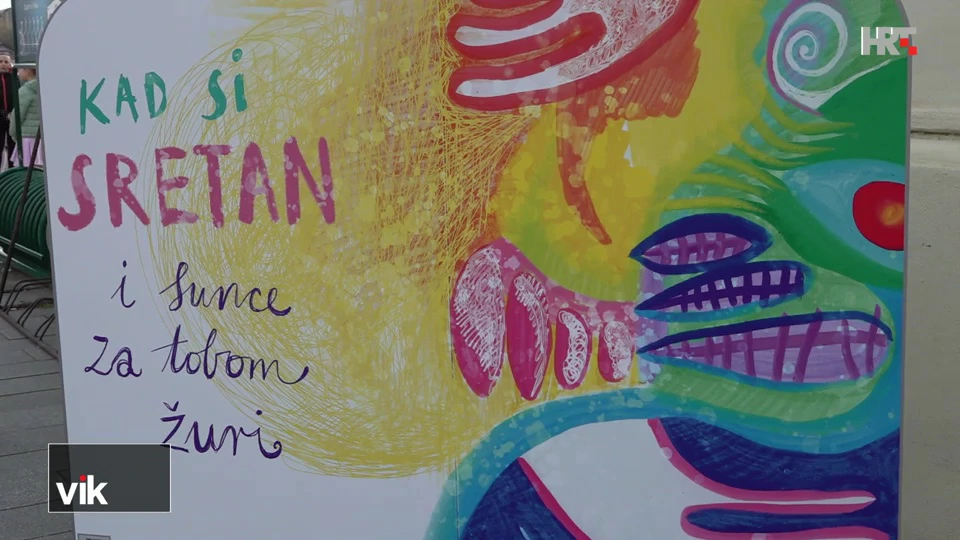 KAD SI
SRETAN
i sunce
za tobom
žuri
HRT
vik